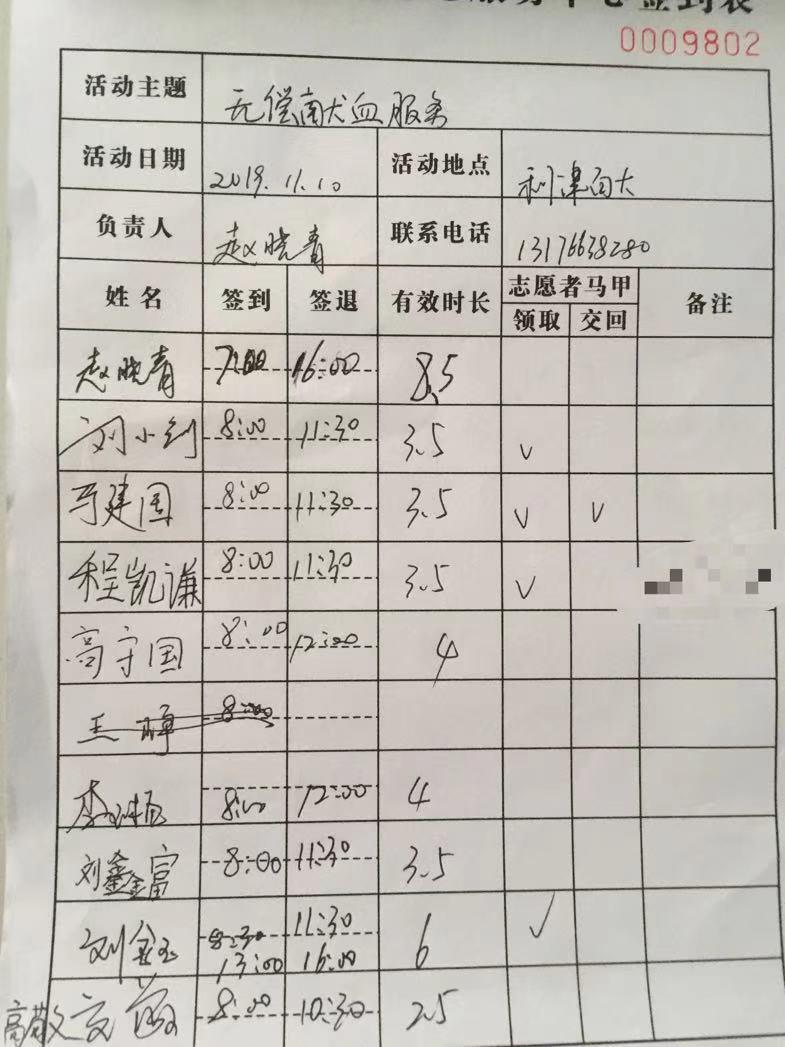 服务中心签到表
0009802
活动主题 无偿献血服务
活动日期 2019.11.10 活动地点 利津百大
负责人 赵晓青 联系电话 13176638280
姓名 签到 签退 有效时长 志愿者马甲 备注
领取 交回
赵晓青 7:00 16:00 8.5
刘小利 8:00 11:30 3.5 √
马建国 8:00 11:30 3.5 √ √
程凯谦 8:00 11:30 3.5 √
高守国 8:00 12:00 4
8:00
李 8:00 12:00 4
刘鑫富 8:00 11:30 3.5
刘金玉 8:30 11:30 6 √
13:00 16:00
高 8:00 10:30 2.5